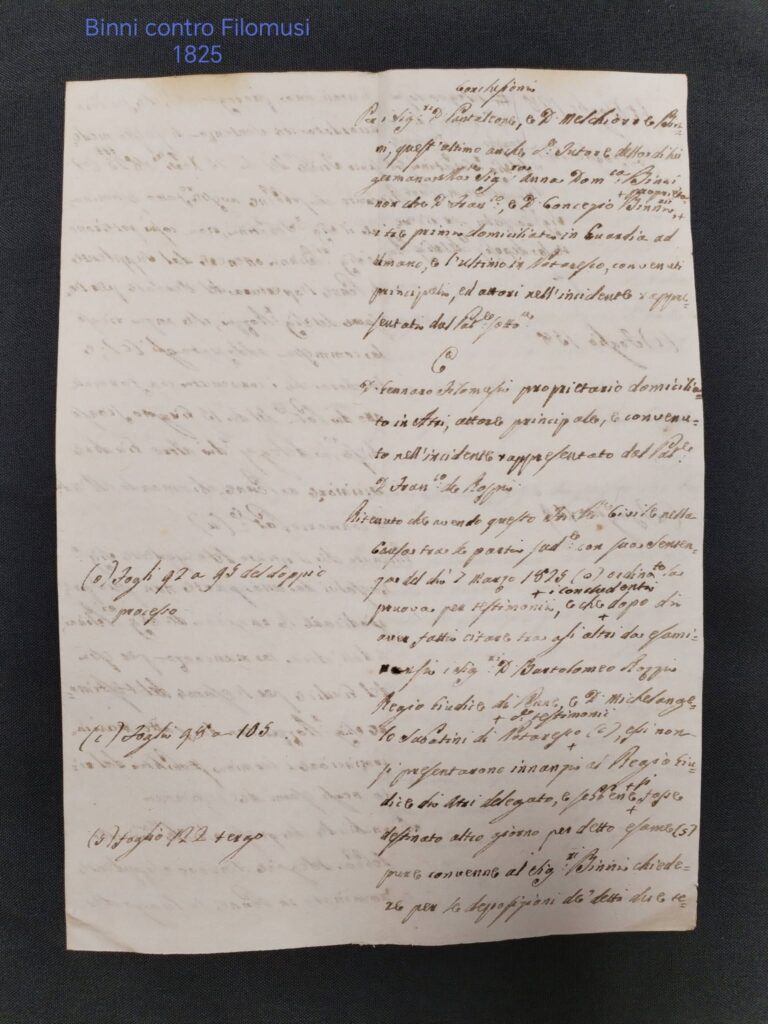 Binni contro Filomusi
1825
Conclusioni
Per i Sig.ri D. Pantaleone, e D. Melchiorre Bin=
ni, quest'ultimo anche
germana Sig.ra Anna Dom.ca Binni
+ proprieta=
non che D. Fran.co, e D. Concezio Binni +
i tre primi domiciliati in Guardia ad
Umano, e l'ultimo in Notaresco, convenuti
principali, ed attori nell'incidente rappre=
sentati dal Pat.re sotto
C
D. Gennaro Filomusi proprietario domicilia=
to in Atri, attore principale, e convenu=
to nell'incidente rappresentato dal Pat.
D. Fran.co de Rossi
Ritenuto che avendo questo Civile nella
Causa tra le parti sud.e con sua senten=
za del dì 7 Marzo 1825 (o) ordinato la
+ concludenti
pruova per testimoni, e che dopo di
aver fatti citare tra gli altri da esami=
i Sig.ri D. Bartolomeo
Regio Giudice di e D. Michelange=
+ testimoni
lo Sabatini di Notaresco (c), essi non
+
si presentarono innanzi al Regio Giu=
dice di Atri delegato, e fosse
destinato altro giorno per detto esame (s)
pure convenne al Sig.ri Binni chiede=
re per le deposizioni de' detti due te=
(o) Fogli 92 a 95 del doppio
processo
(c) Foglio 98 a 105
(s) foglio 122 tergo